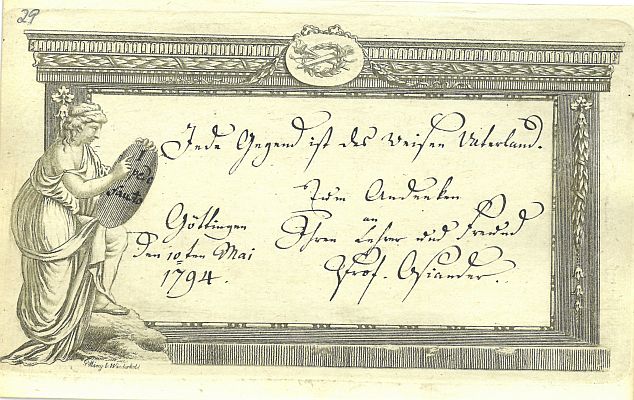 29
Jede Gegend ist des Weisen Vaterland.
Zum Andenken
an
Ihren Lehrer und Freund
Prof. Osiander.
Göttingen
den 10ten Mai
1794.